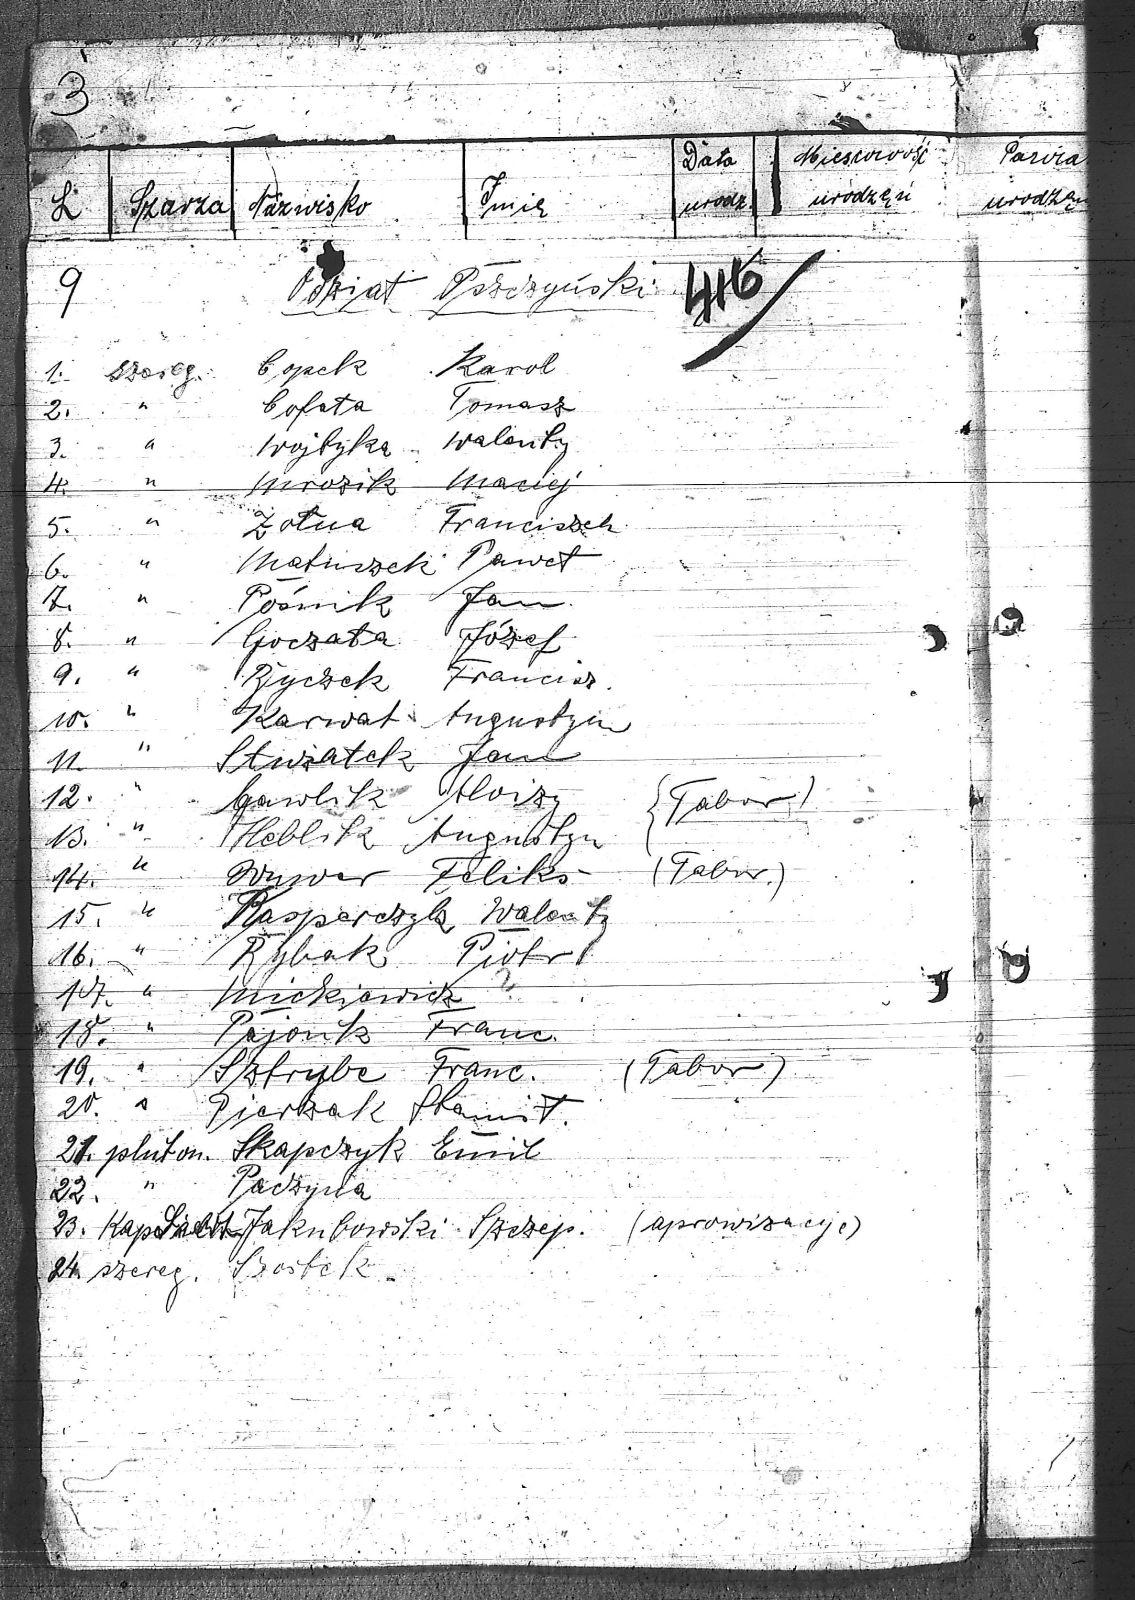 3
L Szarża Nazwisko Imię Data urodz. Miescowość urodzęń Parvia urodzęn
9 Odział Pszczyński 416
1. szereg. Copek Karol
2. " Cofała Tomasz
3. " Wojtyka Walenty
4. " Mrozik Maciej
5. " Żołna Franciszek
6. " Matuszek Paweł
7. " Pośnik Jan
8. " Goczała Józef
9. " Ryczek Francisz.
10. " Karwat Augustyn
11. " Stwiałek Jan
12. " Gawlik Aloizy (Tabor)
13. " Heblik Augustyn
14. " Feliks (Tabor.)
15. " Kasperczyk Walenty
16. " Rybak Piotr
17. " Mickiewicz ?
18. " Pajonk Franc.
19. " Sztrybe Franc. (Tabor)
20. " Pierzak Stanisł.
21. pluton. Skapczyk Emil
22. " Paczyna
23. Kap. Jakubowski Szczep. (aprowizacyc)
24. szereg. Szostek